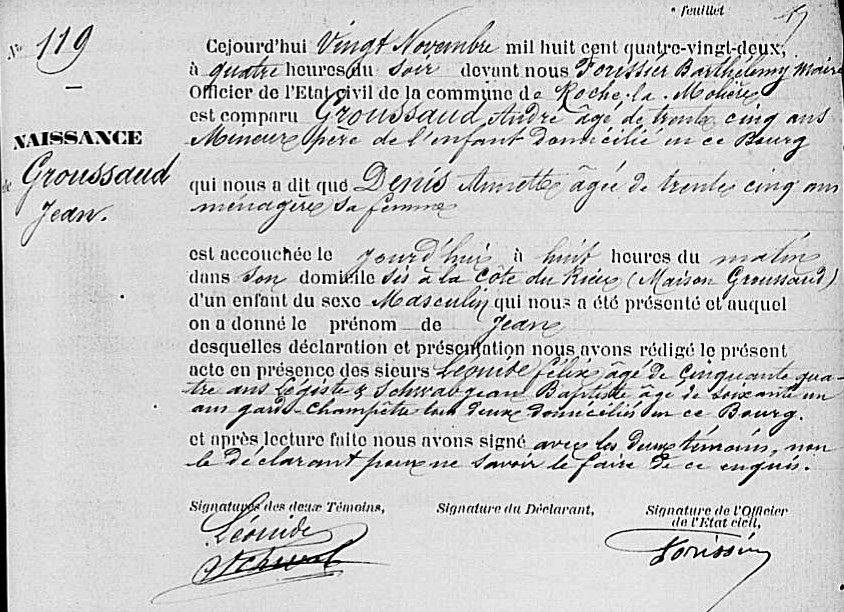 feuillet
N° 119
Cejourd'hui Vingt Novembre mil huit cent quatre-vingt-deux,
à quatre heures du soir devant nous Forissier Barthélemy Maire
Officier de l'Etat civil de la commune de Roche-la-Molière
est comparu Groussaud André âgé de trente cinq ans
Mineur père de l'enfant domicilié en ce Bourg
NAISSANCE
de Groussaud
Jean.
qui nous a dit que Denis Annette âgée de trente cinq ans
ménagère sa femme
est accouchée le jourd'hui à huit heures du matin
dans son domicile sis à la Côte du Rieu (Maison Groussaud)
d'un enfant du sexe Masculin qui nous a été présenté et auquel
on a donné le prénom de Jean
desquelles déclaration et présentation nous avons rédigé le présent
acte en présence des sieurs Léonide Félix âgé de cinquante qua-
tre ans Légiste & Schwab Jean Baptiste âgé de soixante un
ans garde-champêtre tous deux domiciliés en ce Bourg.
et après lecture faite nous avons signé avec les deux témoins, non
le déclarant pour ne savoir le faire de ce enquis.
Signatures des deux Témoins,
Signature du Déclarant,
Signature de l'Officier
de l'Etat civil,
Léonide
Schwab
Forissier